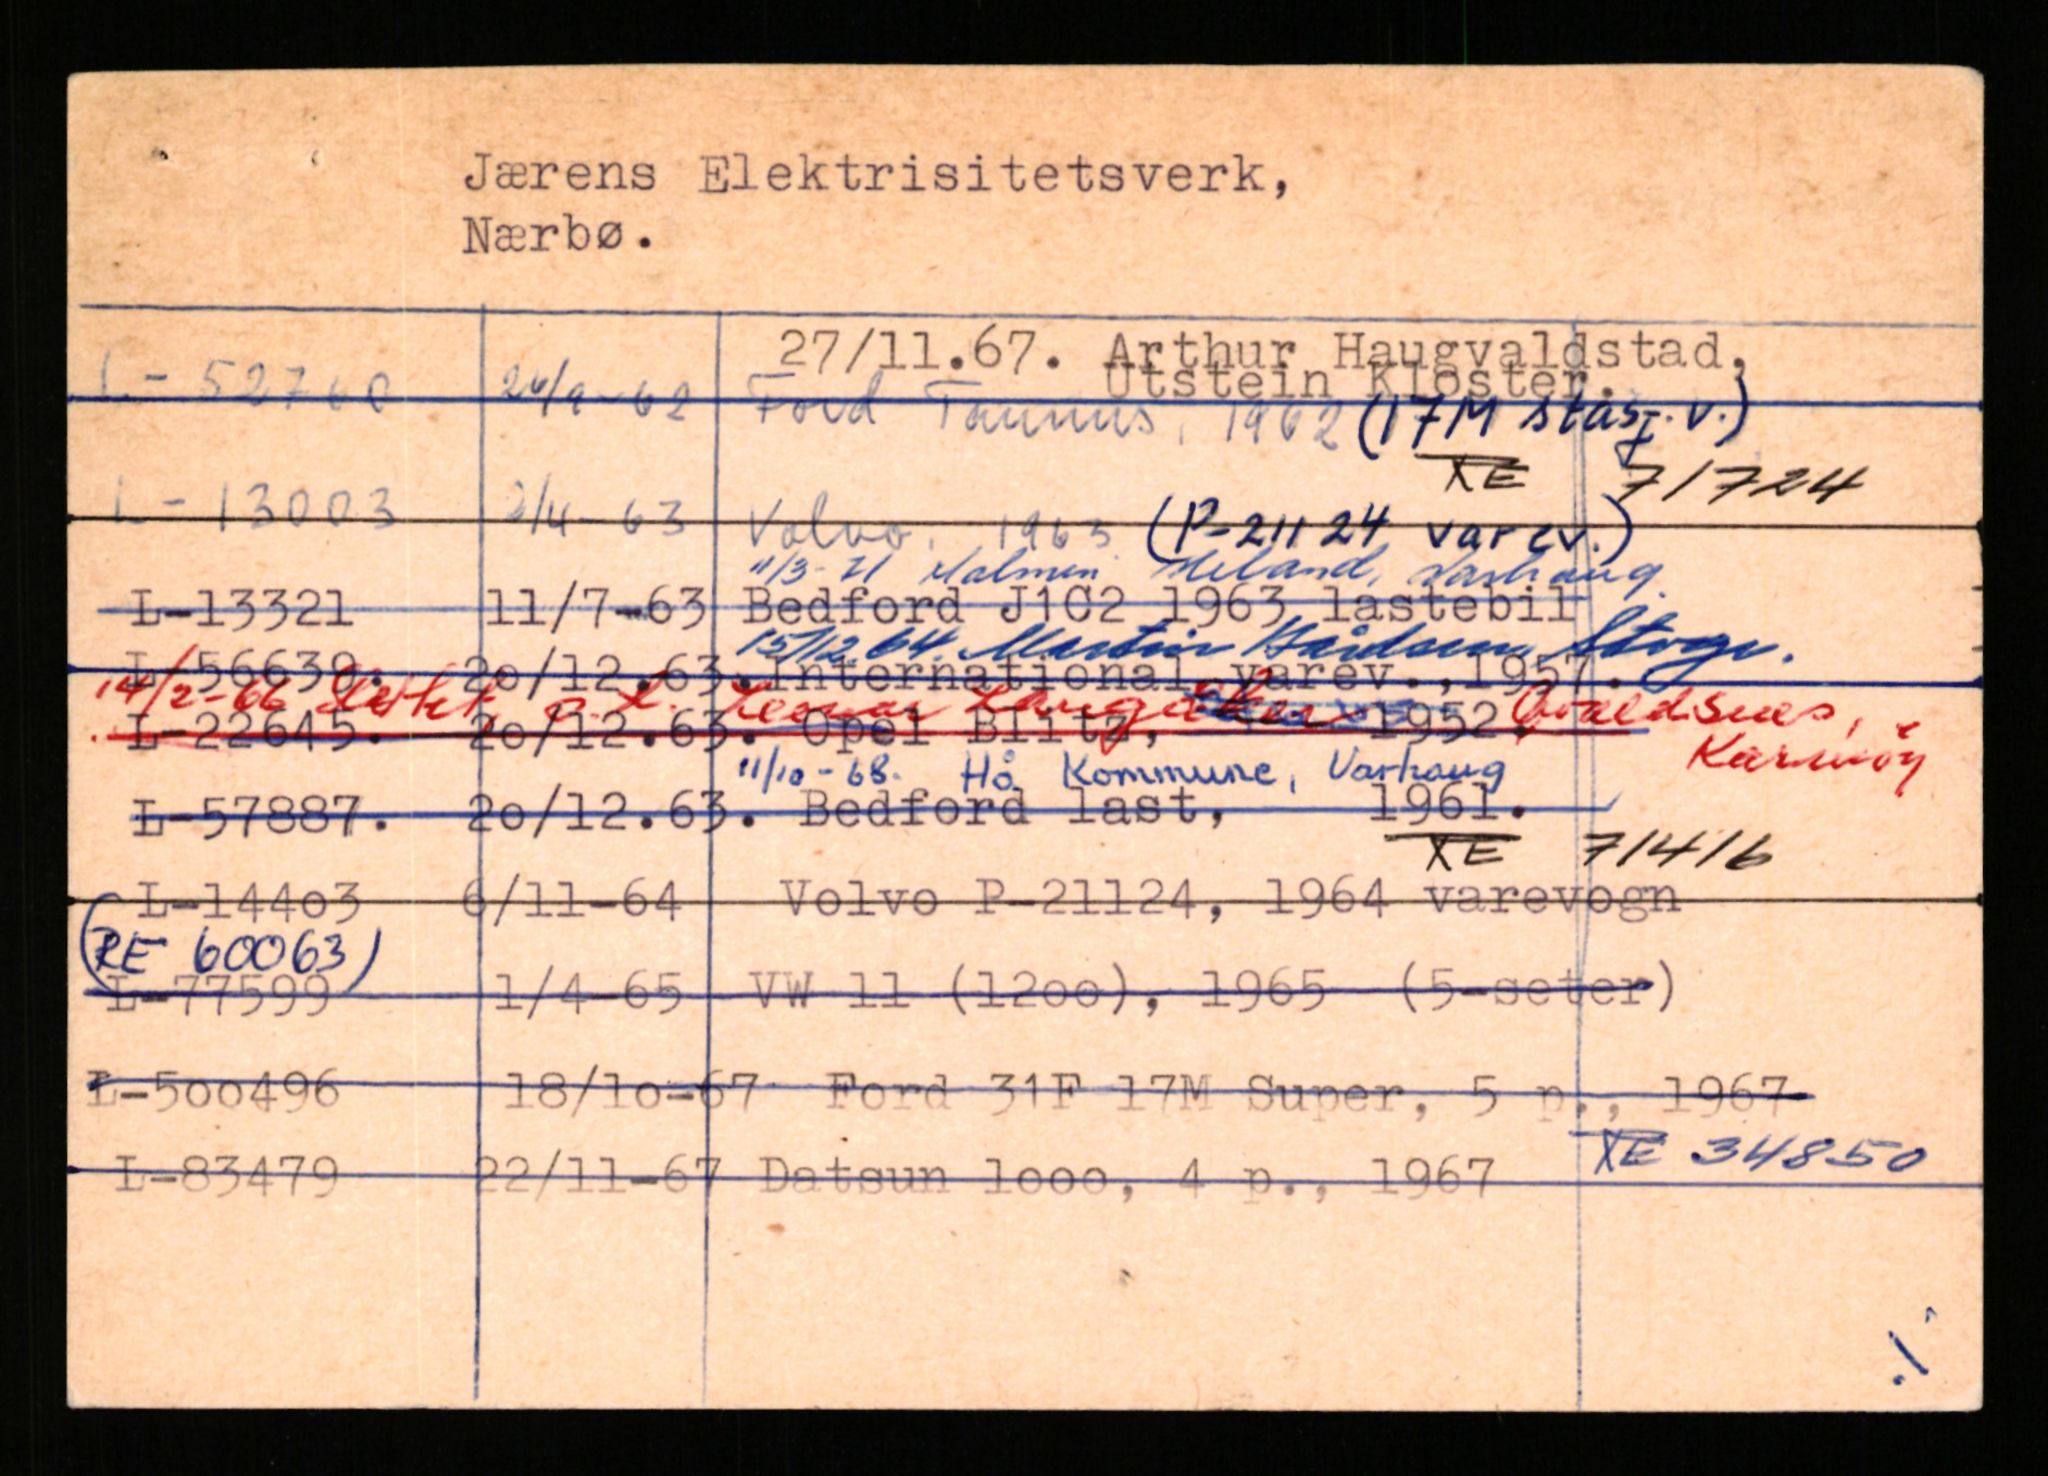 Jærens Elektrisitetsverk,
Nærbø.
27/11.67. Arthur Haugvaldstad,
Utstein Kloster.
L-52760 26/9-62 Ford Taunus, 1962 (17M stasj.v.)
XE 71724
L-13003 2/4-63 Volvo, 1963 (P-21124 varev.)
11/3-71 Malmin Heland, Varhaug
L-13321 11/7-63 Bedford J1C2 1963 lastebil
15/12.64. Martin Stvgr.
L-56639. 2o/12.63. International varev.,1957.
14/2-66 Avaldsnes,
L-22645. 2o/12.63. Opel Blitz, 1952.
Karmøy
11/10-68. Hå Kommune, Varhaug
L-57887. 2o/12.63. Bedford last, 1961.
XE 71416
L-144o3 6/11-64 Volvo P-21124, 1964 varevogn
(RE 60063)
L-77599 1/4-65 VW 11 (12oo), 1965 (5-seter)
L-5oo496 18/1o-67 Ford 31F 17M Super, 5 p., 1967
XE 34850
L-83479 22/11-67 Datsun looo, 4 p., 1967
./.